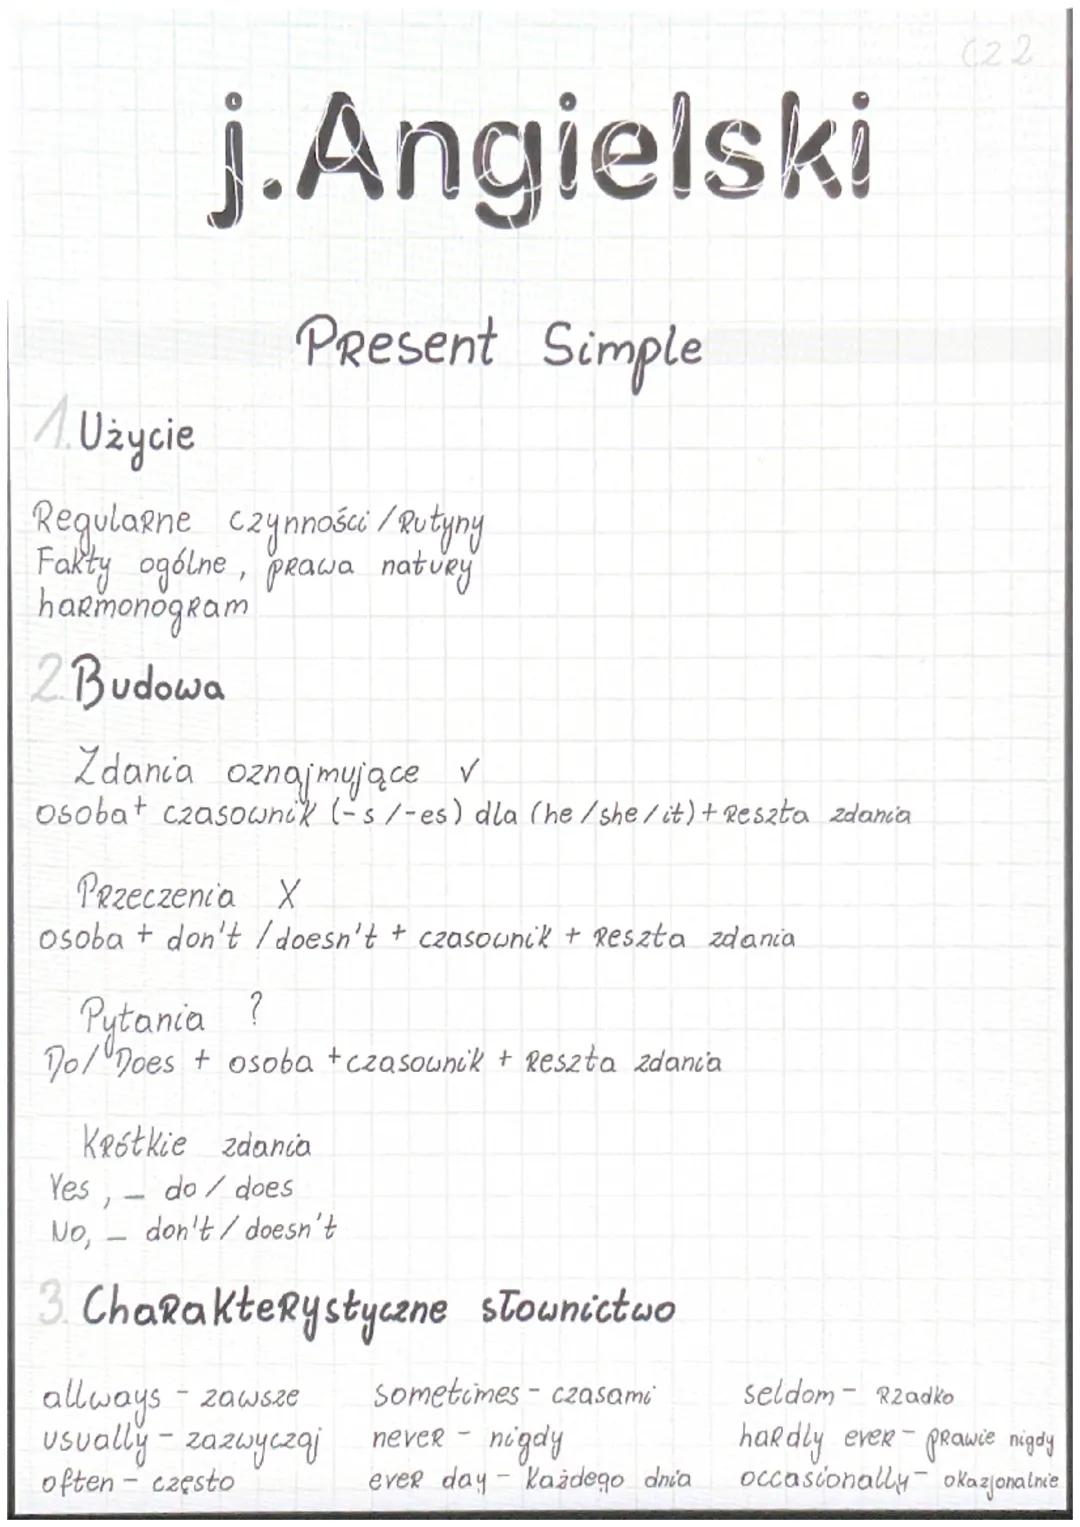 cz 2
j.Angielski
Present Simple
1. Użycie
Regularne czynności / Rutyny
Fakty ogólne, prawa natury
harmonogram
2. Budowa
Zdania oznajmujące ✓
osoba + czasownik (-s /-es) dla (he /she / it) + Reszta zdania
Przeczenia X
osoba + don't / doesn't + czasownik + Reszta zdania
Pytania ?
Do/ Does + osoba + czasownik + Reszta zdania
Krótkie zdania
Yes , _ do / does
No, _ don't / doesn't
3. Charakterystyczne słownictwo
allways - zawsze sometimes - czasami seldom - Rzadko
usually - zazwyczaj never - nigdy hardly ever - prawie nigdy
often - często ever day - każdego dnia occasionally - okazjonalnie